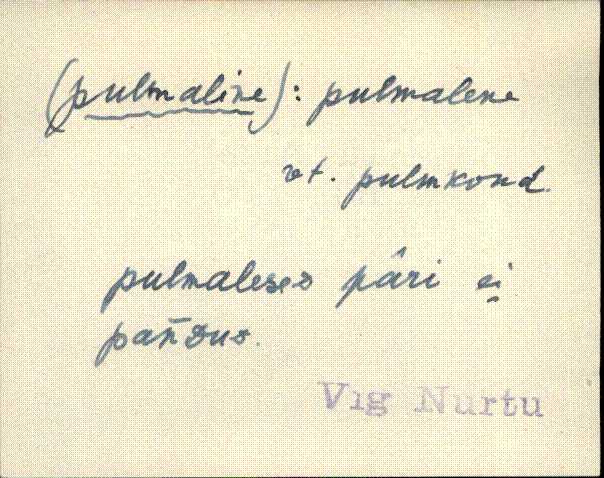 (pulmaline): pulmalene
vt. pulmkond.
pulmaleses päri ei
Vig Nurtu